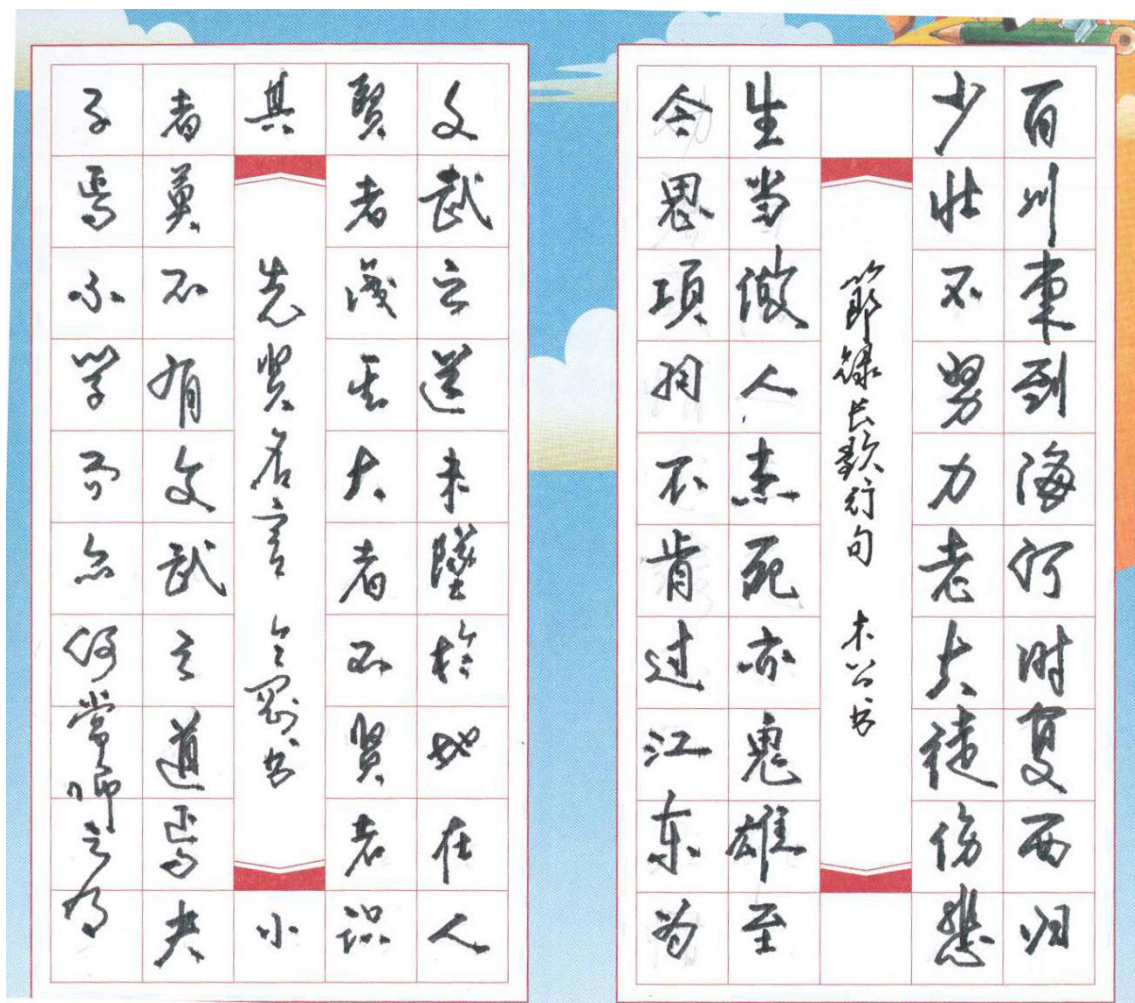 百川東到海何时复西归
少壮不努力老大徒伤悲
節録长歌行句 木公书
生当做人杰死亦鬼雄至
今思项羽不肯过江东为
文武之道未墜於地在人
賢者識其大者不贤者识
其小
先贤名言 书
者莫不有文武之道焉夫
子焉不学而亦何常师之有